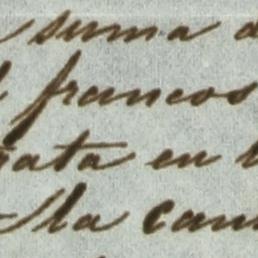 suma d
francos
rata en l
la can